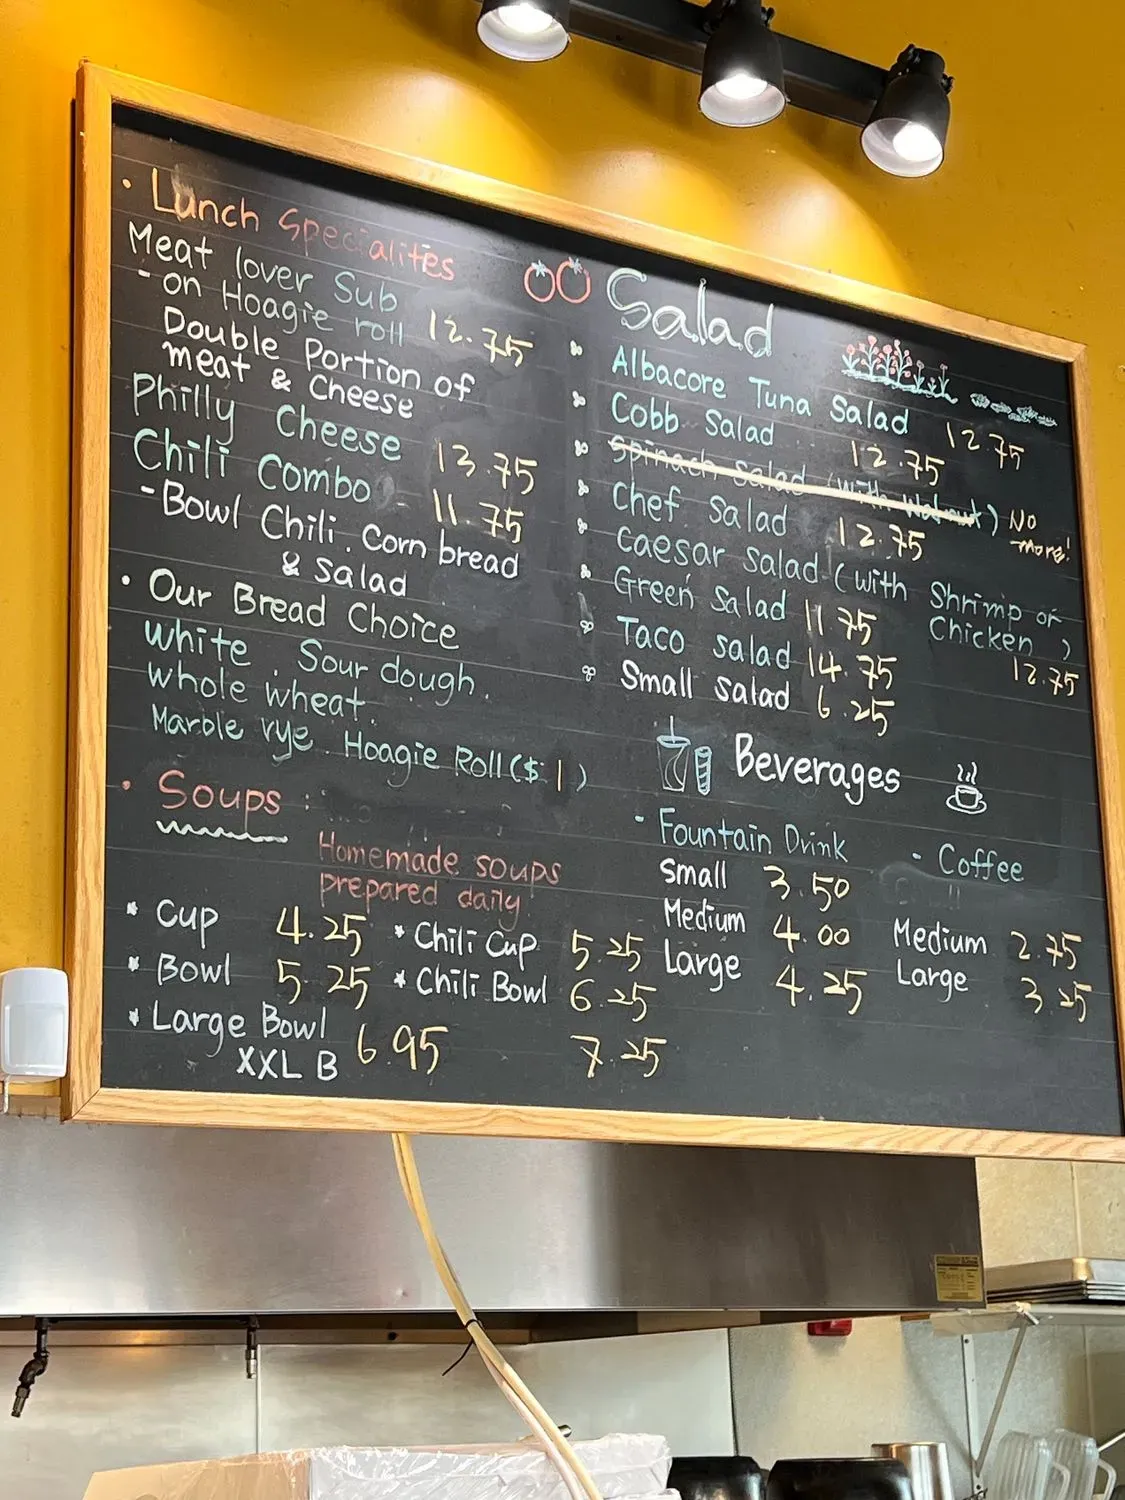 • Lunch Specialites
Meat lover Sub
- on Hoagie roll 12.75
Double Portion of
meat & Cheese
Philly Cheese 13.75
Chili Combo 11.75
- Bowl Chili. Corn bread
& Salad
• Our Bread Choice
White. Sour dough.
Whole wheat.
Marble rye. Hoagie Roll ($1)
• Soups :
Homemade soups
prepared daily
* Cup 4.25
* Bowl 5.25
* Large Bowl 6.95
XXL B
* Chili Cup 5.25
* Chili Bowl 6.25
7.25
Salad
Albacore Tuna Salad 12.75
Cobb Salad 12.75
Spinach Salad (with Walnut) No
more!
Chef Salad 12.75
Caesar Salad (with Shrimp or
Chicken) 12.75
Green Salad 11.75
Taco Salad 14.75
Small Salad 6.25
Beverages
- Fountain Drink
Small 3.50
Medium 4.00
Large 4.25
- Coffee
Medium 2.75
Large 3.25